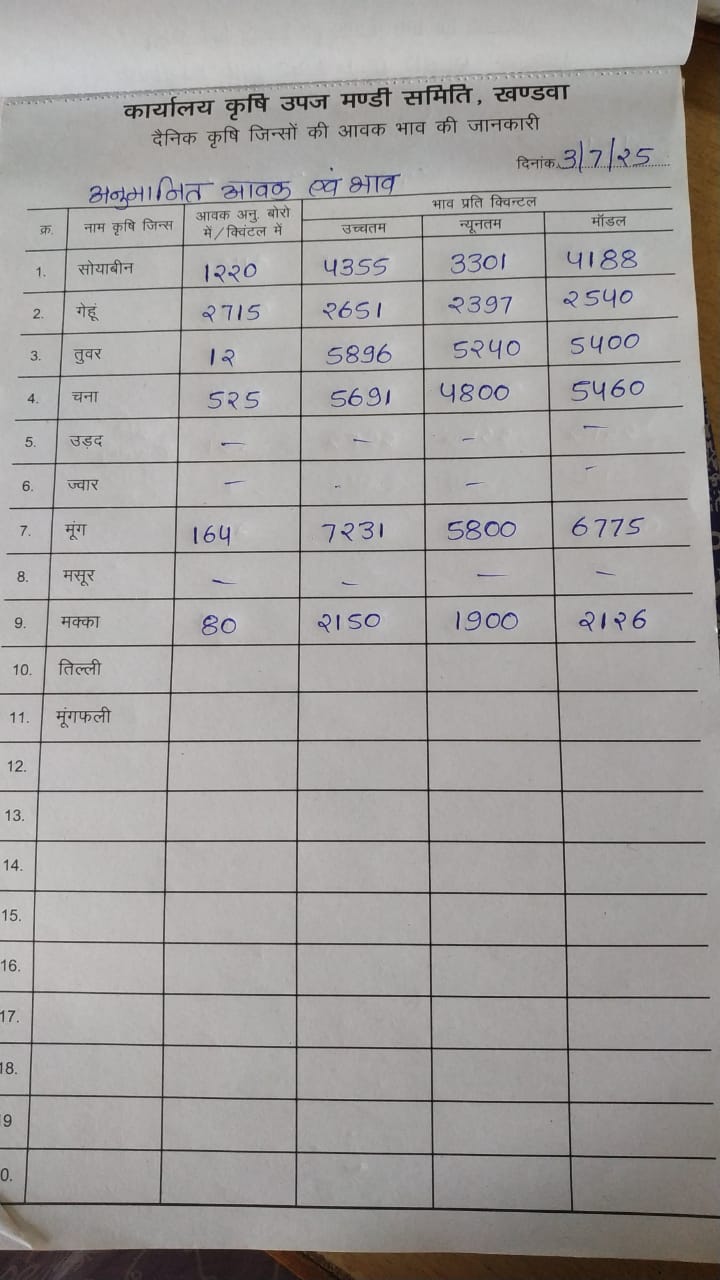 कार्यालय कृषि उपज मण्डी समिति, खण्डवा
दैनिक कृषि जिन्सों की आवक भाव की जानकारी
दिनांक 3/7/२5
अनुमानित आवक एवं भाव
क्र. नाम कृषि जिन्स आवक अनु. बोरो में/क्विंटल में भाव प्रति क्विन्टल
उच्चतम न्यूनतम मॉडल
1. सोयाबीन 1२२0 4355 3301 4188
2. गेहूं २715 २651 २397 २540
3. तुवर 1२ 5896 5२40 5400
4. चना 5२5 5691 4800 5460
5. उड़द – – – –
6. ज्वार – - – –
7. मूंग 164 7२31 5800 6775
8. मसूर – – – –
9. मक्का 80 २150 1900 २1२6
10. तिल्ली
11. मूंगफली
12.
13.
14.
15.
16.
17.
18.
9
0.